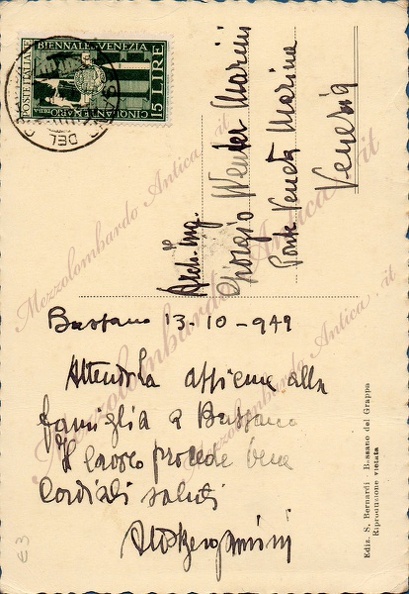 POSTE ITALIANE
BIENNALE VENEZIA
CINQUANTENARIO
15 LIRE
DEL
Arch. Ing.
Giorgio Wenter Marini
Ponte Veneta Marina
Venezia
Bassano 13-10-949
Attendola assieme alla
famiglia a Bassano
Il lavoro procede bene
Cordiali saluti
Ediz. S. Bernardi - Bassano del Grappa
Riproduzione vietata
Mezzolombardo Antica . it
Mezzolombardo Antica . it
Mezzolombardo Antica . it
€3